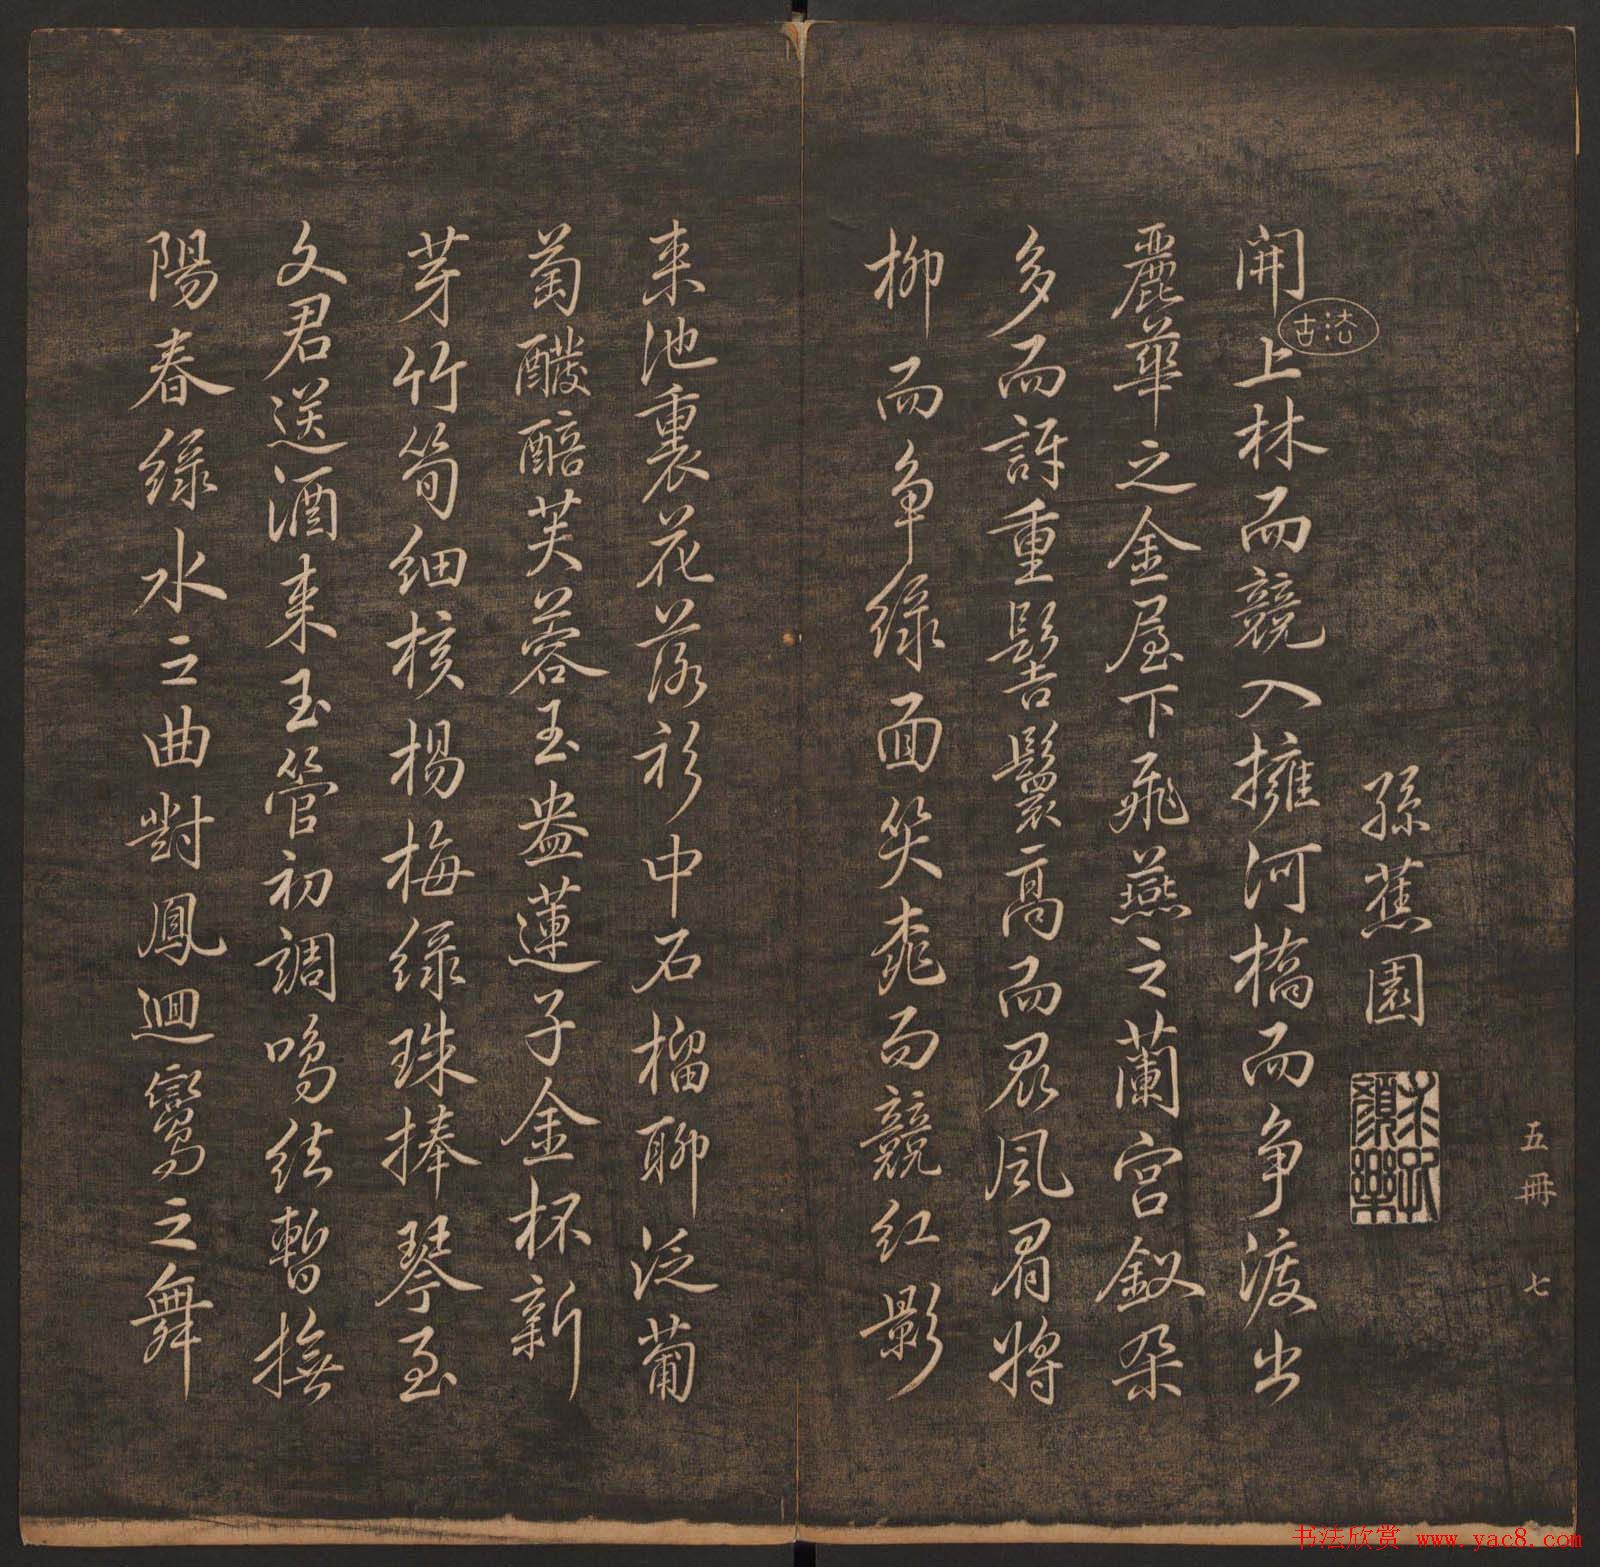 五冊 七
孫蕉園
法古
開上林而競入擁河橋而争渡出
麗華之金屋下飛燕之蘭宮釵朵
多而訝重髻鬟高而畏風眉將
柳而争綠面笑桃而競紅影
来池裏花落衫中石榴聊泛葡
萄醱醅芙蓉玉盎蓮子金杯新
芽竹筍細核楊梅綠珠捧琴至
文君送酒来玉管初調鳴絃暫撫
陽春綠水之曲對鳳迴鸞之舞
书法欣赏 www.yac8.com